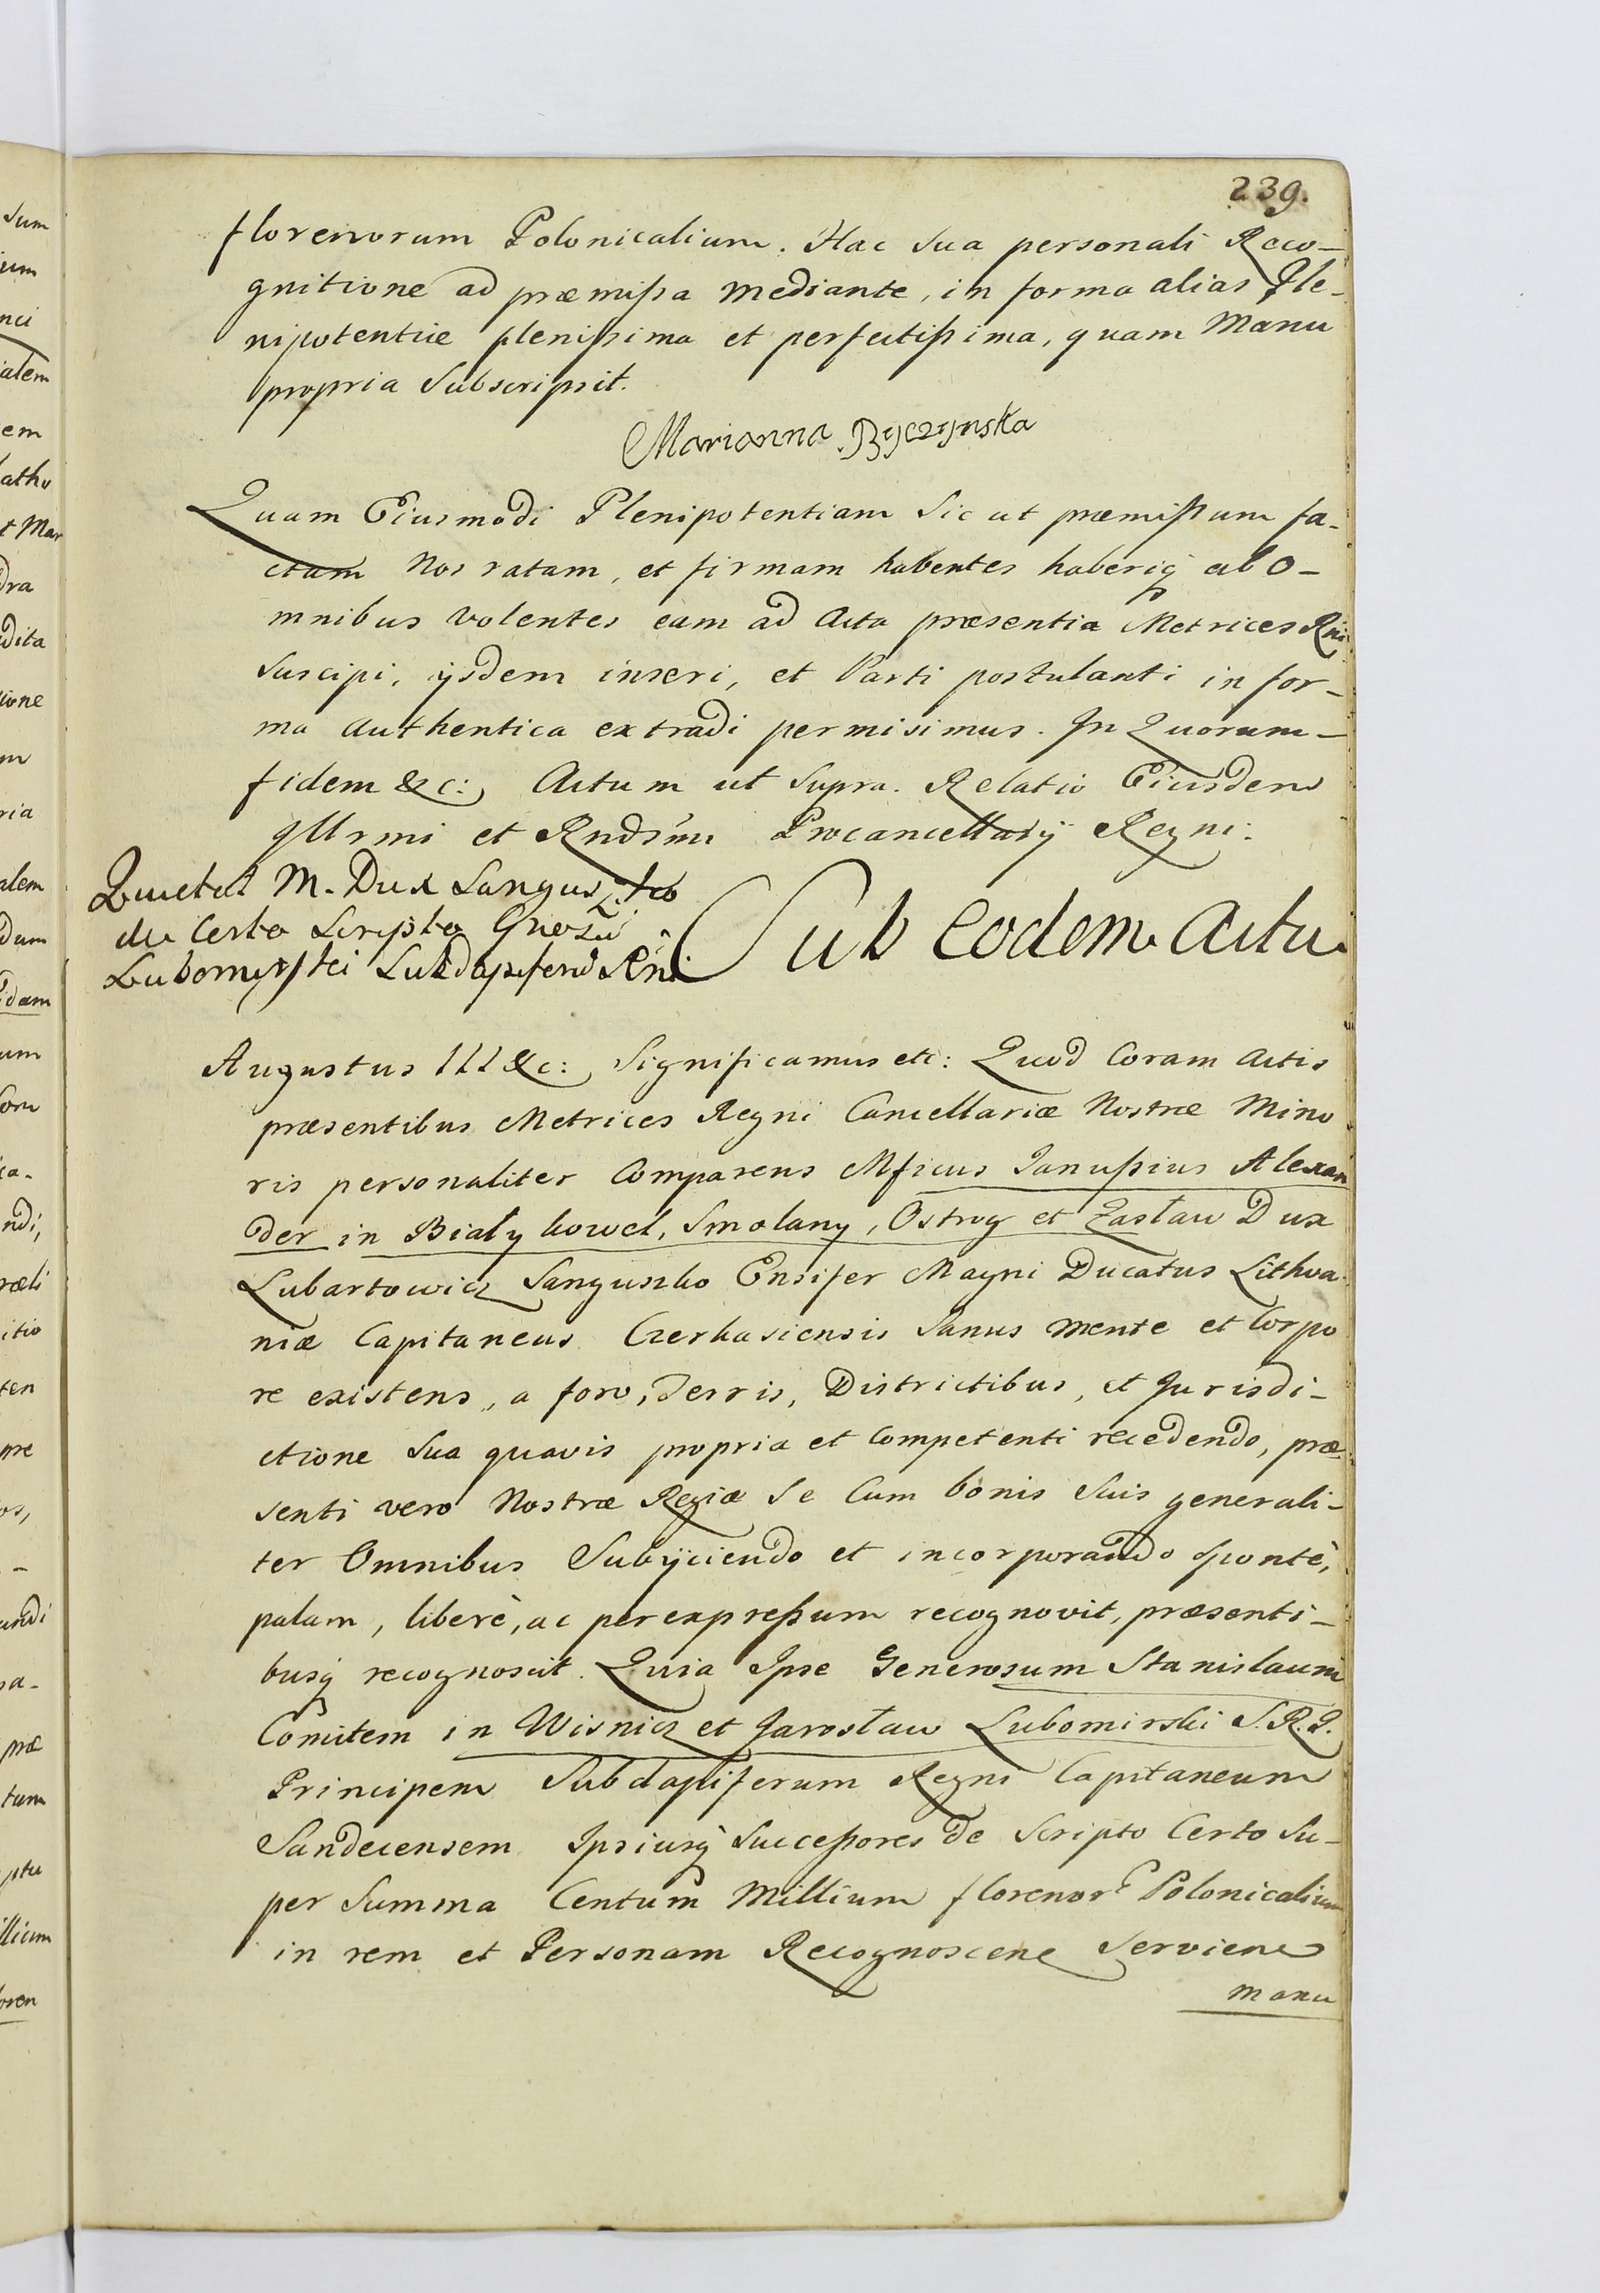 239.
florenorum Polonicalium. Hac Sua personali Reco-
gnitione ad præmissa mediante, in forma alias Ple-
nipotentiæ plenissima et perfectissima, quam Manu
propria Subscripsit.
Marianna Byczynska
Quam Eiusmodi Plenipotentiam Sic ut præmissum fa-
ctam Nos ratam, et firmam habentes haberiq ab O-
mnibus volentes eam ad Acta præsentia Metrices Rni
Suscipi, ijsdem inseri, et Parti postulanti in for-
ma Authentica extradi permisimus. In Quorum-
fidem &c: Actum ut Supra. Relatio Eiusdem
Illrmi et Rndsmi Procancellarij Regni:
Quietat M. Dux Sanguszko
de Certo Scripto Gnosū
Lubomirski Subdapiferū Rni
Sub eodem Actu
Augustus III &c: Significamus etc: Quod Coram Actis
præsentibus Metrices Regni Cancellariæ Nostræ Mino
ris personaliter Comparens Mficus Janussius Alexan
der in Biały kowel, Smolany, Ostrog et Zasław Dux
Lubartowicz Sanguszko Ensifer Magni Ducatus Lithva
niæ Capitaneus Czerkasiensis Sanus mente et Corpo
re existens, a foro, Terris, Districtibus, et Jurisdi-
ctione Sua quavis propria et Competenti recedendo, præ
senti vero Nostræ Regiæ Se Cum bonis Suis generali-
ter Omnibus Subijciendo et incorporando Spontè,
palam, liberè, ac per expressum recognovit, præsenti-
busq recognoscit. Quia Ipse Generosum Stanislaum
Comitem in Wisnicz et Jarosław Lubomirski S. R. I.
Principem Subdapiferum Regni Capitaneum
Sandecensem Ipsiusq Successores de Scripto Certo Su-
per Summa Centum Millium florenor Polonicalium
in rem et Personam Recognoscene Serviene
manu